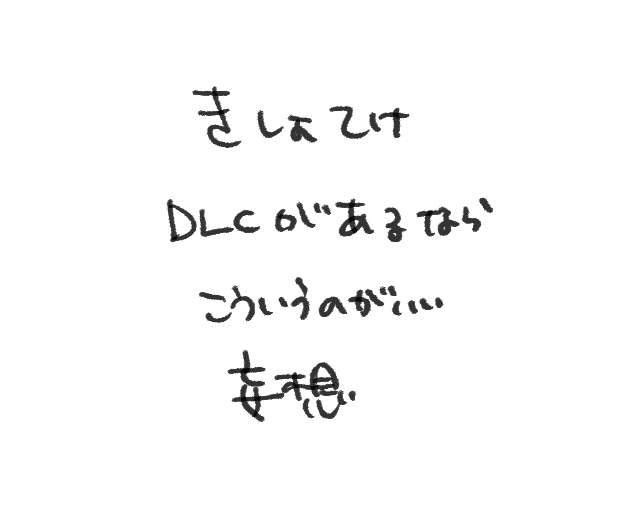 きしょてけ
DLCがあるなら
こういうのが…
妄想